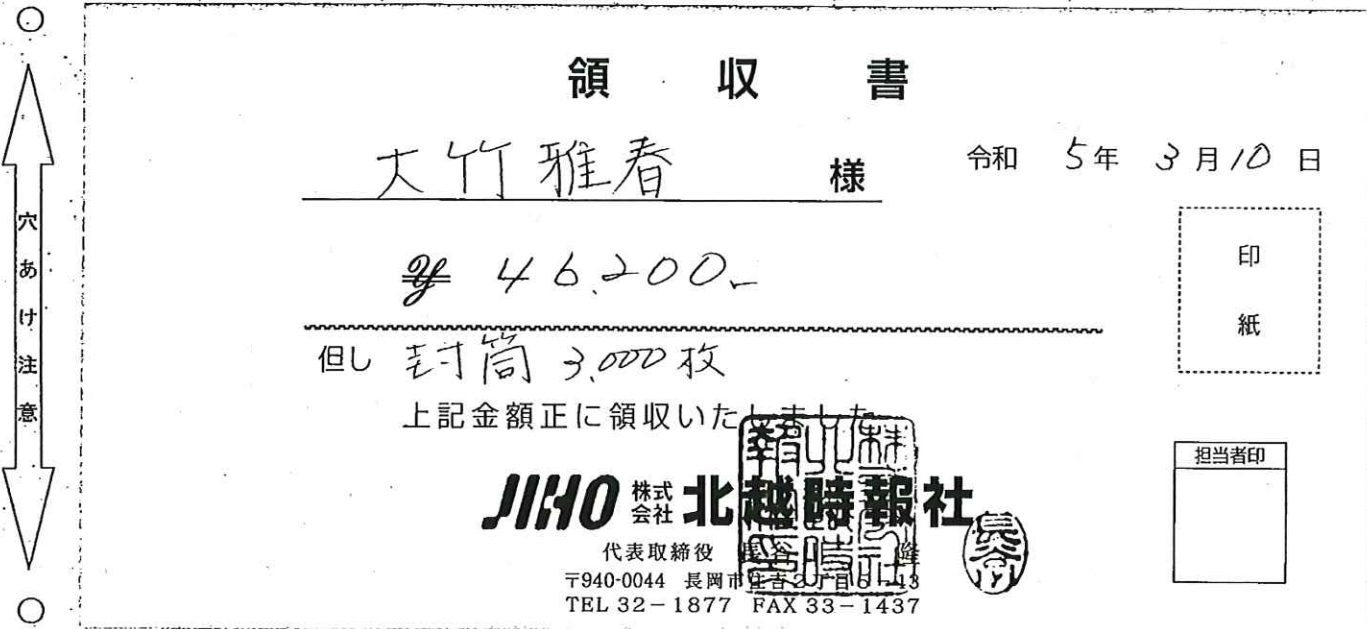 領収書
大竹雅春 様
令和 5年 3月10日
¥ 46,200-
印紙
但し 封筒 3,000枚
上記金額正に領収いたしました
担当者印
JIHO 株式会社 北越時報社
代表取締役 長谷川 隆
〒940-0044 長岡市住吉2丁目5-13
TEL 32-1877 FAX 33-1437
長谷川
穴あけ注意